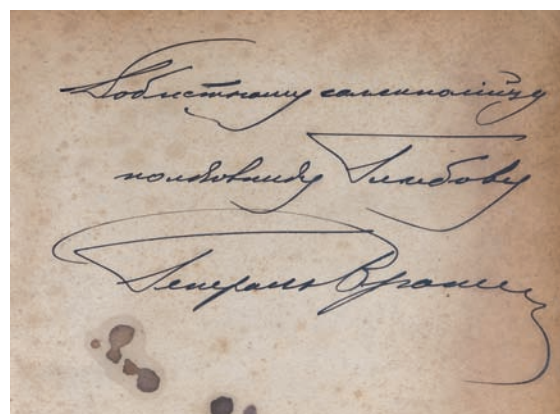 Доблестному галлиполійцу
полковнику Глибову
Генералъ Врангель